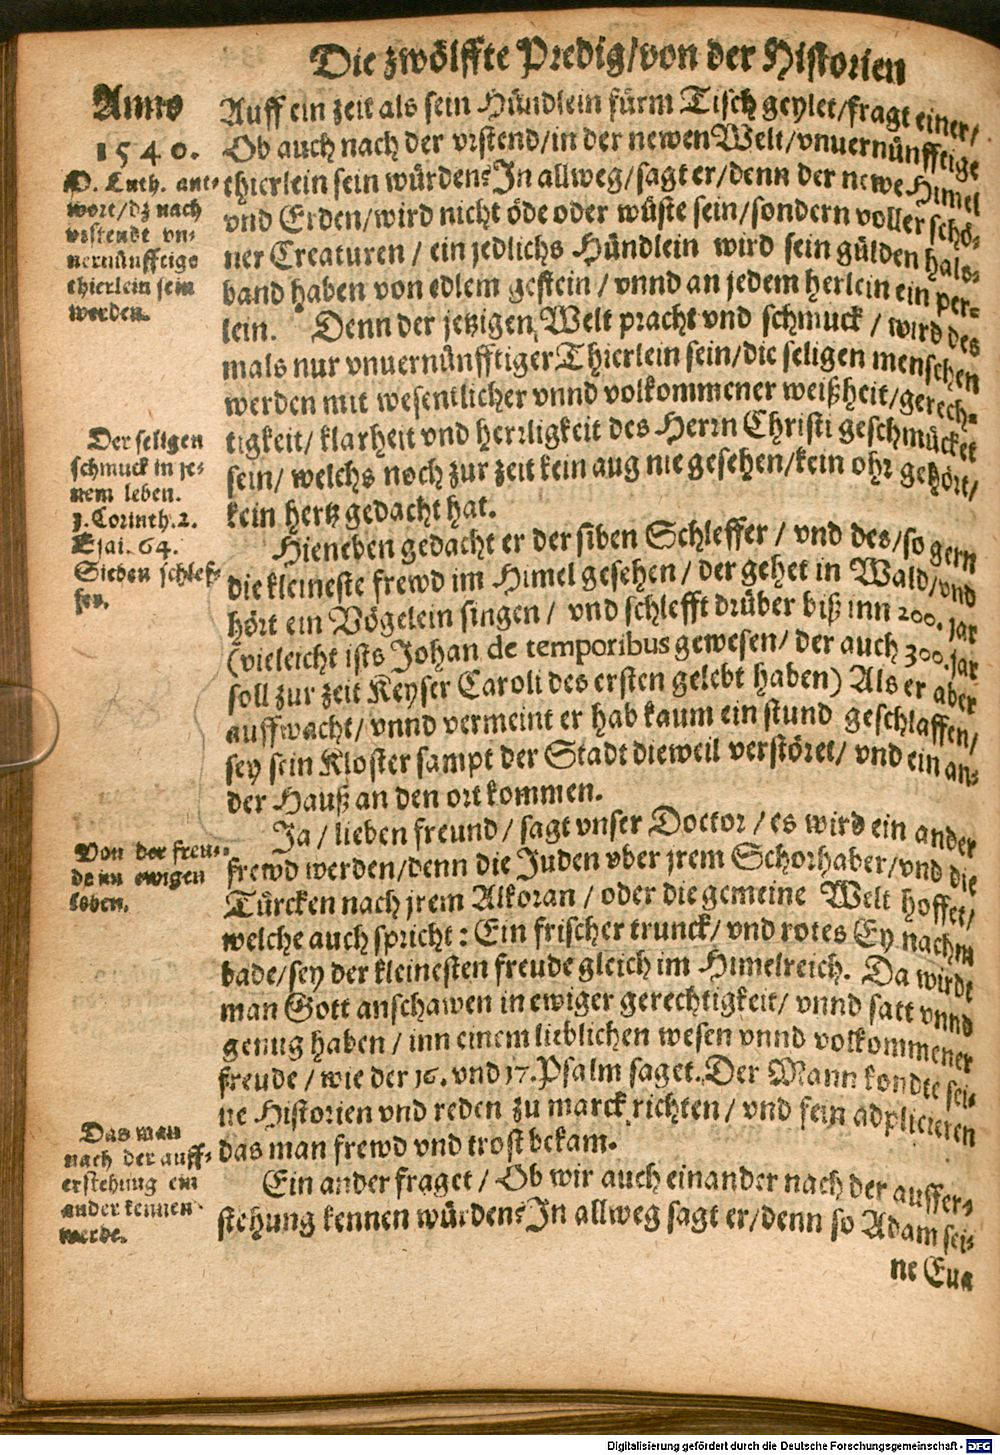 Die zwölffte Predig/von der Historien
Anno
1540.
D. Luth. ant-
wort/dz nach
vrstende vn-
uernünfftige
thierlein sein
werden.
Auff ein zeit als sein Hündlein fürm Tisch geylet/fragt einer/
Ob auch nach der vrstend/in der newen Welt/vnuernünfftige
thierlein sein würden? In allweg/sagt er/denn der newe Himel
vnd Erden/wird nicht öde oder wüste sein/sondern voller schö-
ner Creaturen / ein jedlichs Hündlein wird sein gülden hals-
band haben von edlem gestein / vnnd an jedem herlein ein per-
lein. Denn der jetzigen Welt pracht vnd schmuck / wird des
mals nur vnuernünfftiger Thierlein sein/die seligen menschen
werden mit wesentlicher vnnd volkommener weißheit/gerech-
tigkeit/ klarheit vnd herrligkeit des Herrn Christi geschmücket
sein/ welchs noch zur zeit kein aug nie gesehen/kein ohr gehört/
kein hertz gedacht hat.
Der seligen
schmuck in je-
nem leben.
1. Corinth.2.
Esai. 64.
Sieben schlef-
fer.
Hieneben gedacht er der siben Schleffer / vnd des/so gern
die kleineste frewd im Himel gesehen / der gehet in Wald/vnd
hört ein Vögelein singen / vnd schlefft drüber biß inn 200. jar
(vieleicht ists Johan de temporibus gewesen/ der auch 300.jar
soll zur zeit Keyser Caroli des ersten gelebt haben) Als er aber
auffwacht/ vnnd vermeint er hab kaum ein stund geschlaffen/
sey sein Kloster sampt der Stadt dieweil verstöret/ vnd ein an-
der Hauß an den ort kommen.
Von der freu-
de im ewigen
leben.
Ja / lieben freund / sagt vnser Doctor / es wird ein ander
frewd werden/denn die Juden vber jrem Schorhaber/vnd die
Türcken nach jrem Alkoran / oder die gemeine Welt hoffet/
welche auch spricht : Ein frischer trunck/ vnd rotes Ey nachm
bade/sey der kleinesten freude gleich im Himelreich. Da wirdt
man Gott anschawen in ewiger gerechtigkeit/ vnnd satt vnnd
genug haben / inn einem lieblichen wesen vnnd volkommener
freude / wie der 16. vnd 17. Psalm saget. Der Mann kondte sei-
ne Historien vnd reden zu marck richten / vnd fein adplicieren
das man frewd vnd trost bekam.
Das man
nach der auff-
erstehung ein
ander kennen
werde.
Ein ander fraget / Ob wir auch einander nach der auffer-
stehung kennen würden? In allweg sagt er/denn so Adam sei-
ne Eua
Digitalisierung gefördert durch die Deutsche Forschungsgemeinschaft - DFG